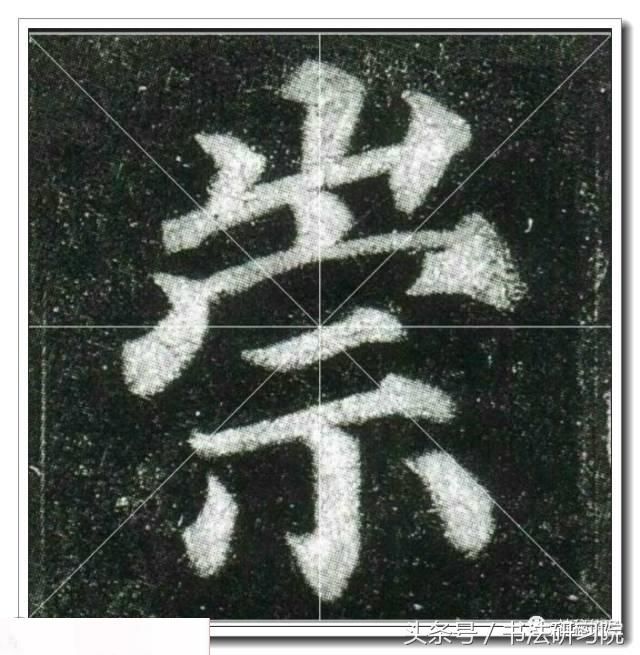 崇
头条号 / 书法研习院